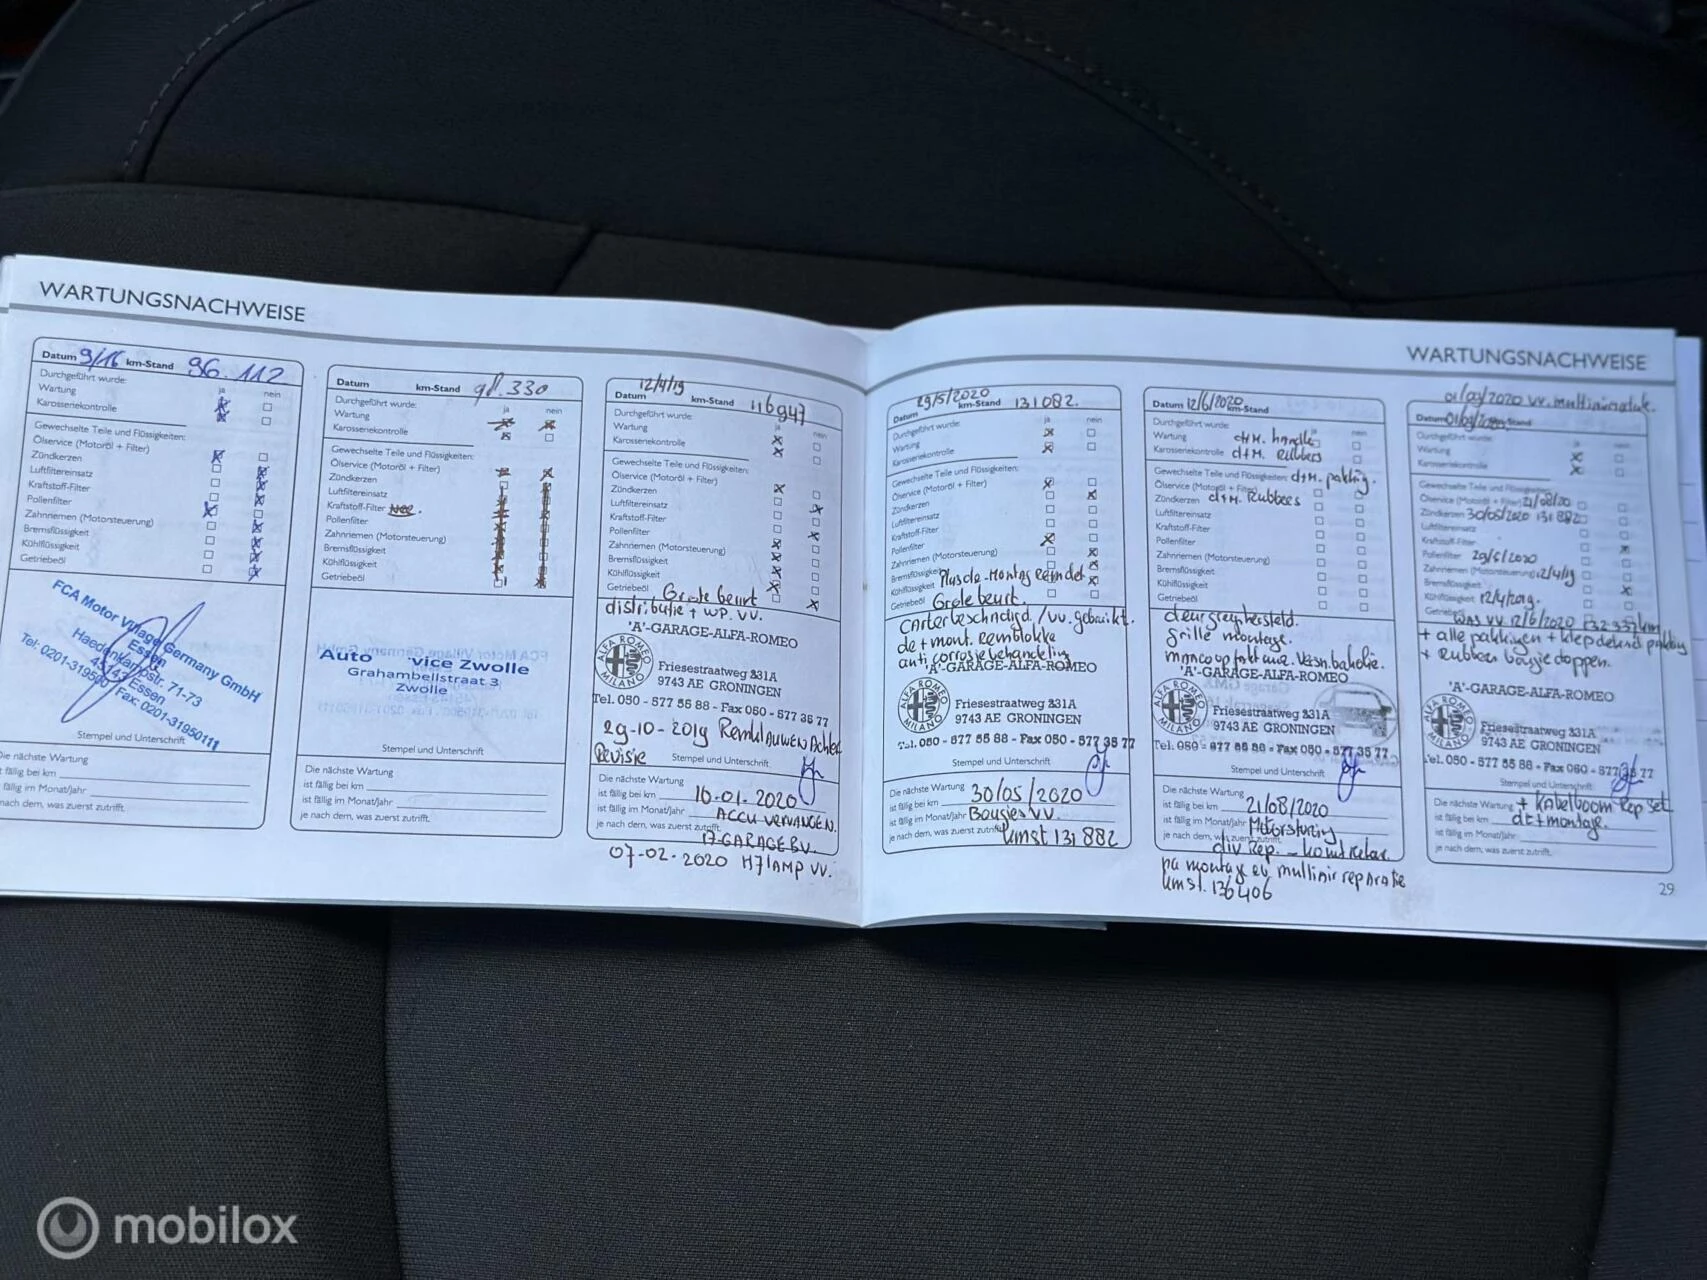 WARTUNGSNACHWEISE
Datum 9/16 km-Stand 96.112
Durchgeführt wurde: ja nein
Wartung
Karosseriekontrolle
Gewechselte Teile und Flüssigkeiten:
Ölservice (Motoröl + Filter)
Zündkerzen
Luftfiltereinsatz
Kraftstoff-Filter
Pollenfilter
Zahnriemen (Motorsteuerung)
Bremsflüssigkeit
Kühlflüssigkeit
Getriebeöl
FCA Motor Village Germany GmbH
Essen
Haedenkampstr. 71-73
45143 Essen
Tel: 0201-319500 Fax: 0201-31950111
Stempel und Unterschrift
Die nächste Wartung
ist fällig bei km
fällig im Monat/Jahr
nach dem, was zuerst zutrifft.
Datum km-Stand 98.330
Durchgeführt wurde: ja nein
Wartung
Karosseriekontrolle
Gewechselte Teile und Flüssigkeiten:
Ölservice (Motoröl + Filter)
Zündkerzen
Luftfiltereinsatz
Kraftstoff-Filter
Pollenfilter
Zahnriemen (Motorsteuerung)
Bremsflüssigkeit
Kühlflüssigkeit
Getriebeöl
Auto vice Zwolle
Grahambellstraat 3
Zwolle
Stempel und Unterschrift
Die nächste Wartung
ist fällig bei km
ist fällig im Monat/Jahr
je nach dem, was zuerst zutrifft.
12/4/19
Datum km-Stand 116947
Durchgeführt wurde: ja nein
Wartung
Karosseriekontrolle
Gewechselte Teile und Flüssigkeiten:
Ölservice (Motoröl + Filter)
Zündkerzen
Luftfiltereinsatz
Kraftstoff-Filter
Pollenfilter
Zahnriemen (Motorsteuerung)
Bremsflüssigkeit
Kühlflüssigkeit
Getriebeöl Grote beurt
distributie + WP. VV.
'A'-GARAGE-ALFA-ROMEO
ALFA ROMEO MILANO
Friesestraatweg 231A
9743 AE GRONINGEN
Tel. 050 - 577 55 88 - Fax 050 - 577 35 77
29-10-2019 Remklauwen Achter
Revisie Stempel und Unterschrift
Die nächste Wartung
ist fällig bei km 10.01.2020
ist fällig im Monat/Jahr ACCU VERVANGEN.
je nach dem, was zuerst zutrifft.
17-GARAGE BV.
07-02-2020 H7 lAMP VV.
WARTUNGSNACHWEISE
29/5/2020
Datum km-Stand 131082.
Durchgeführt wurde: ja nein
Wartung
Karosseriekontrolle
Gewechselte Teile und Flüssigkeiten:
Ölservice (Motoröl + Filter)
Zündkerzen
Luftfiltereinsatz
Kraftstoff-Filter
Pollenfilter
Zahnriemen (Motorsteuerung)
Bremsflüssigkeit
Kühlflüssigkeit
Getriebeöl Grote beurt.
Carter beschadigd / vv. gebruikt.
de + mont. remblokke
anti corrosie behandeling
'A'-GARAGE-ALFA-ROMEO
ALFA ROMEO MILANO
Friesestraatweg 231A
9743 AE GRONINGEN
Tel. 050 - 577 55 88 - Fax 050 - 577 35 77
Stempel und Unterschrift
Die nächste Wartung 30/05/2020
ist fällig bei km Bougies VV.
ist fällig im Monat/Jahr
je nach dem, was zuerst zutrifft kmst 131882
Datum 12/6/2020 km-Stand
Durchgeführt wurde: ja nein
Wartung d+M. handle
Karosseriekontrolle d+M. Rubbers
Gewechselte Teile und Flüssigkeiten: d+M. pakking.
Ölservice (Motoröl + Filter)
Zündkerzen d+M. Rubbers
Luftfiltereinsatz
Kraftstoff-Filter
Pollenfilter
Zahnriemen (Motorsteuerung)
Bremsflüssigkeit
Kühlflüssigkeit
Getriebeöl
deurgreep hersteld.
grille montage.
'A'-GARAGE-ALFA-ROMEO
ALFA ROMEO MILANO
Friesestraatweg 231A
9743 AE GRONINGEN
Tel. 050 - 577 55 88 - Fax 050 - 577 35 77
Stempel und Unterschrift
Die nächste Wartung
ist fällig bei km 21/08/2020
ist fällig im Monat/Jahr Motorstoring
je nach dem, was zuerst zutrifft
div Rep.
na montage multiair reparatie
kmst. 136406
VV. multiair
Datum km-Stand
Durchgeführt wurde: ja nein
Wartung
Karosseriekontrolle
Gewechselte Teile und Flüssigkeiten:
Ölservice (Motoröl + Filter) 21/08/20
Zündkerzen 30/05/2020 131882
Luftfiltereinsatz
Kraftstoff-Filter
Pollenfilter 29/5/2020
Zahnriemen (Motorsteuerung) 12/4/19
Bremsflüssigkeit
Kühlflüssigkeit 12/4/2019.
Getriebeöl was vv. 12/6/2020 132337km
+ alle pakkingen + klepdeksel pakking
+ Rubber bougie doppen.
'A'-GARAGE-ALFA-ROMEO
ALFA ROMEO MILANO
Friesestraatweg 231A
9743 AE GRONINGEN
Tel. 050 - 577 55 88 - Fax 050 - 577 35 77
Stempel und Unterschrift
Die nächste Wartung + Kabelboom Rep set
ist fällig bei km de+montage.
ist fällig im Monat/Jahr
je nach dem, was zuerst zutrifft.
29
mobilox